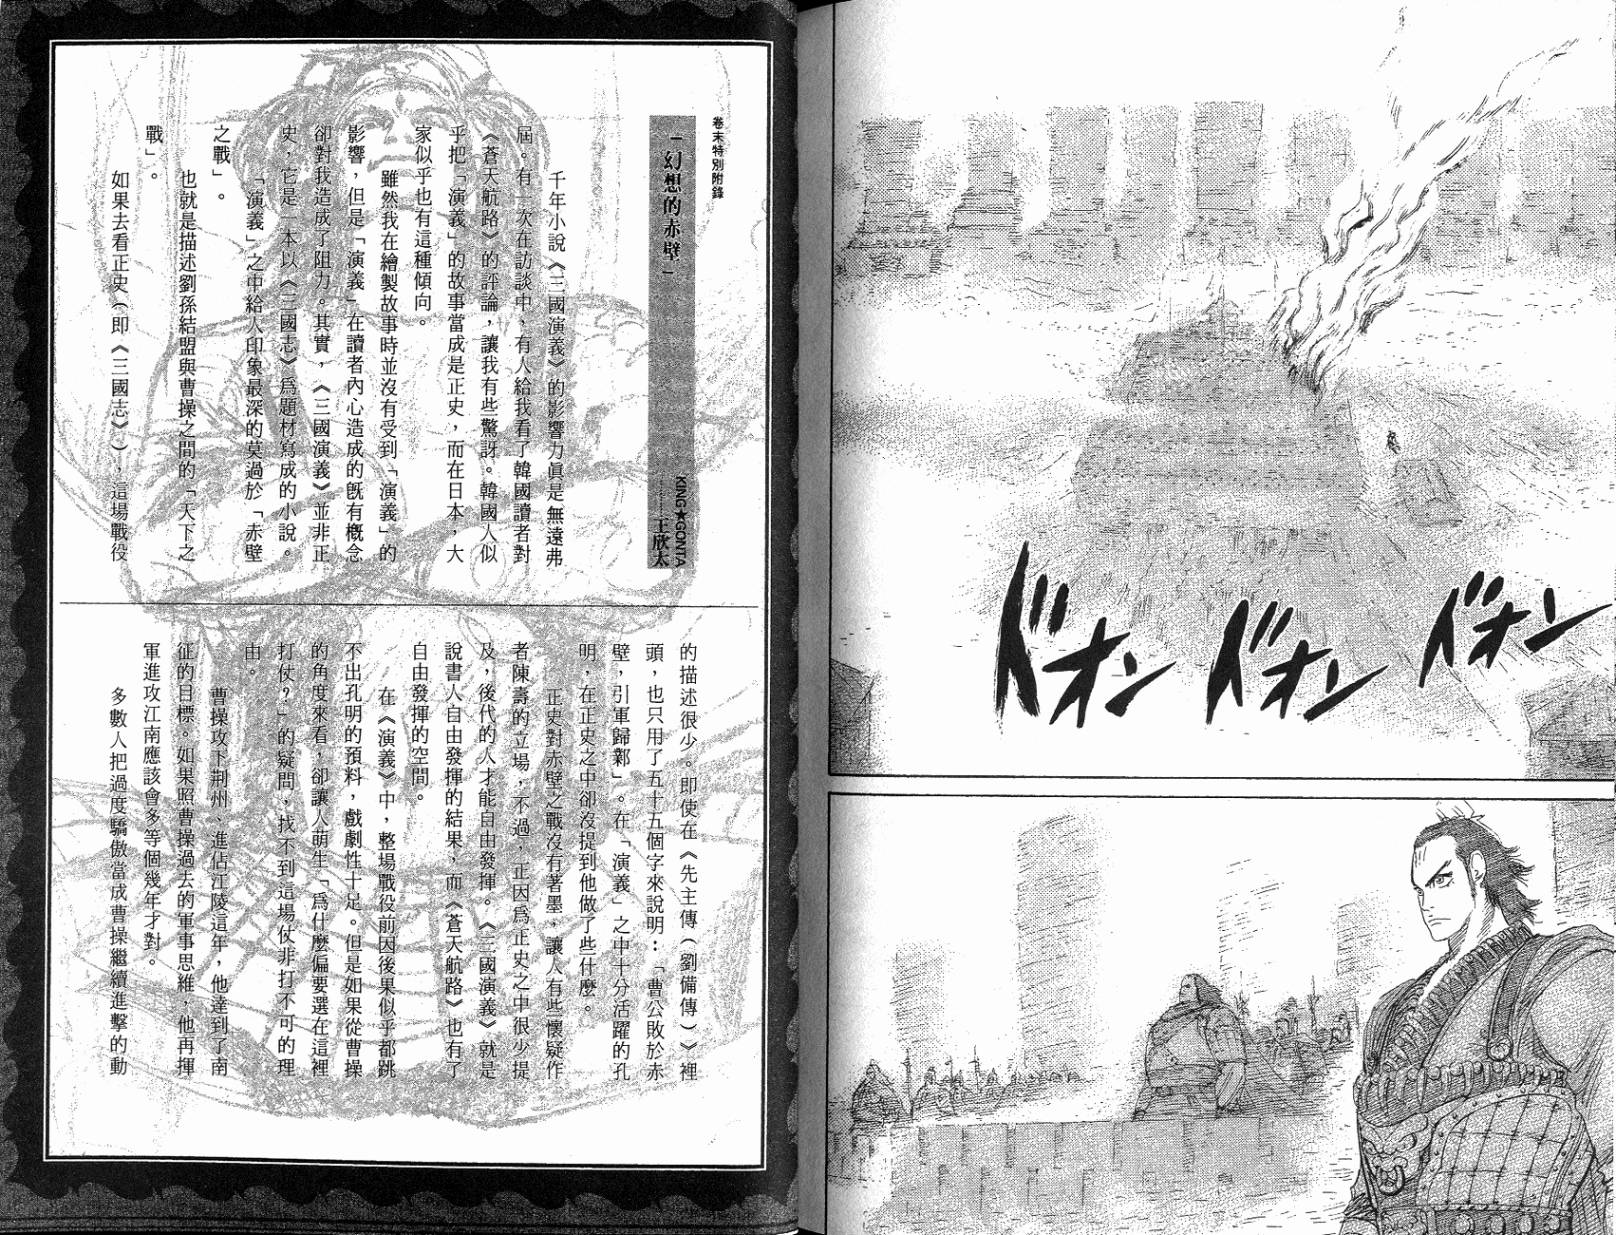 ドオン
ドオン
ドオン
卷末特別附錄
「幻想的赤壁」
KING★GONTA
王欣太
千年小說《三國演義》的影響力眞是無遠弗
屆。有一次在訪談中，有人給我看了韓國讀者對
《蒼天航路》的評論，讓我有些驚訝。韓國人似
乎把「演義」的故事當成是正史，而在日本，大
家似乎也有這種傾向。
雖然我在繪製故事時並沒有受到「演義」的
影響，但是「演義」在讀者內心造成的旣有概念
卻對我造成了阻力。其實，《三國演義》並非正
史，它是一本以《三國志》爲題材寫成的小說。
「演義」之中給人印象最深的莫過於「赤壁
之戰」。
也就是描述劉孫結盟與曹操之間的「天下之
戰」。
如果去看正史（即《三國志》），這場戰役
的描述很少。即使在《先主傳（劉備傳）》裡
頭，也只用了五十五個字來說明：「曹公敗於赤
壁，引軍歸鄴」。在「演義」之中十分活躍的孔
明，在正史之中卻沒提到他做了些什麼。
正史對赤壁之戰沒有著墨，讓人有些懷疑作
者陳壽的立場，不過，正因爲正史之中很少提
及，後代的人才能自由發揮。《三國演義》就是
說書人自由發揮的結果，而《蒼天航路》也有了
自由發揮的空間。
在《演義》中，整場戰役前因後果似乎都跳
不出孔明的預料，戲劇性十足。但是如果從曹操
的角度來看，卻讓人萌生「爲什麼偏要選在這裡
打仗？」的疑問，找不到這場仗非打不可的理
由。
曹操攻下荆州、進佔江陵這年，他達到了南
征的目標。如果照曹操過去的軍事思維，他再揮
軍進攻江南應該會多等個幾年才對。
多數人把過度驕傲當成曹操繼續進擊的動